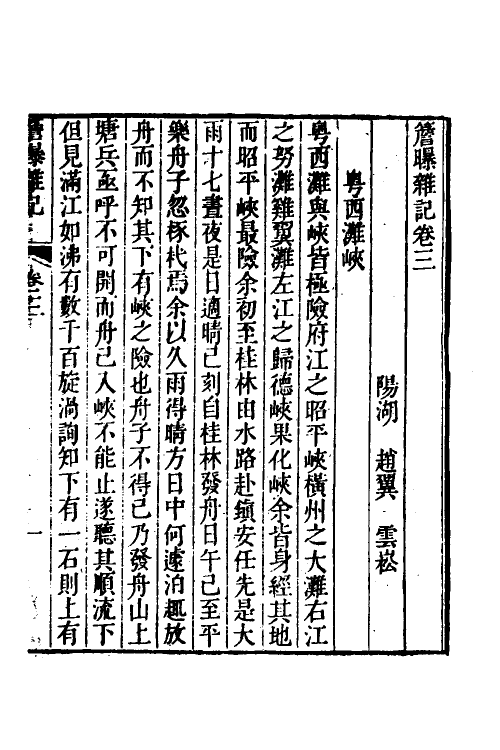 簷曝雜記卷三
陽湖　趙翼　雲崧
粵西灘峽
粵西灘與峽皆極險府江之昭平峽橫州之大灘右江
之努灘雞翼灘左江之歸德峽果化峽余皆身經其地
而昭平峽最險余初至桂林由水路赴鎮安任先是大
雨十七晝夜是日適晴已刻自桂林發舟日午已至平
樂舟子忽椓杙焉余以久雨得晴方日中何遽泊趣放
舟而不知其下有峽之險也舟子不得已乃發舟山上
塘兵亟呼不可開而舟已入峽不能止遂聽其順流下
但見滿江如沸有數千百旋渦詢知下有一石則上有
簷曝雜記　卷三　一